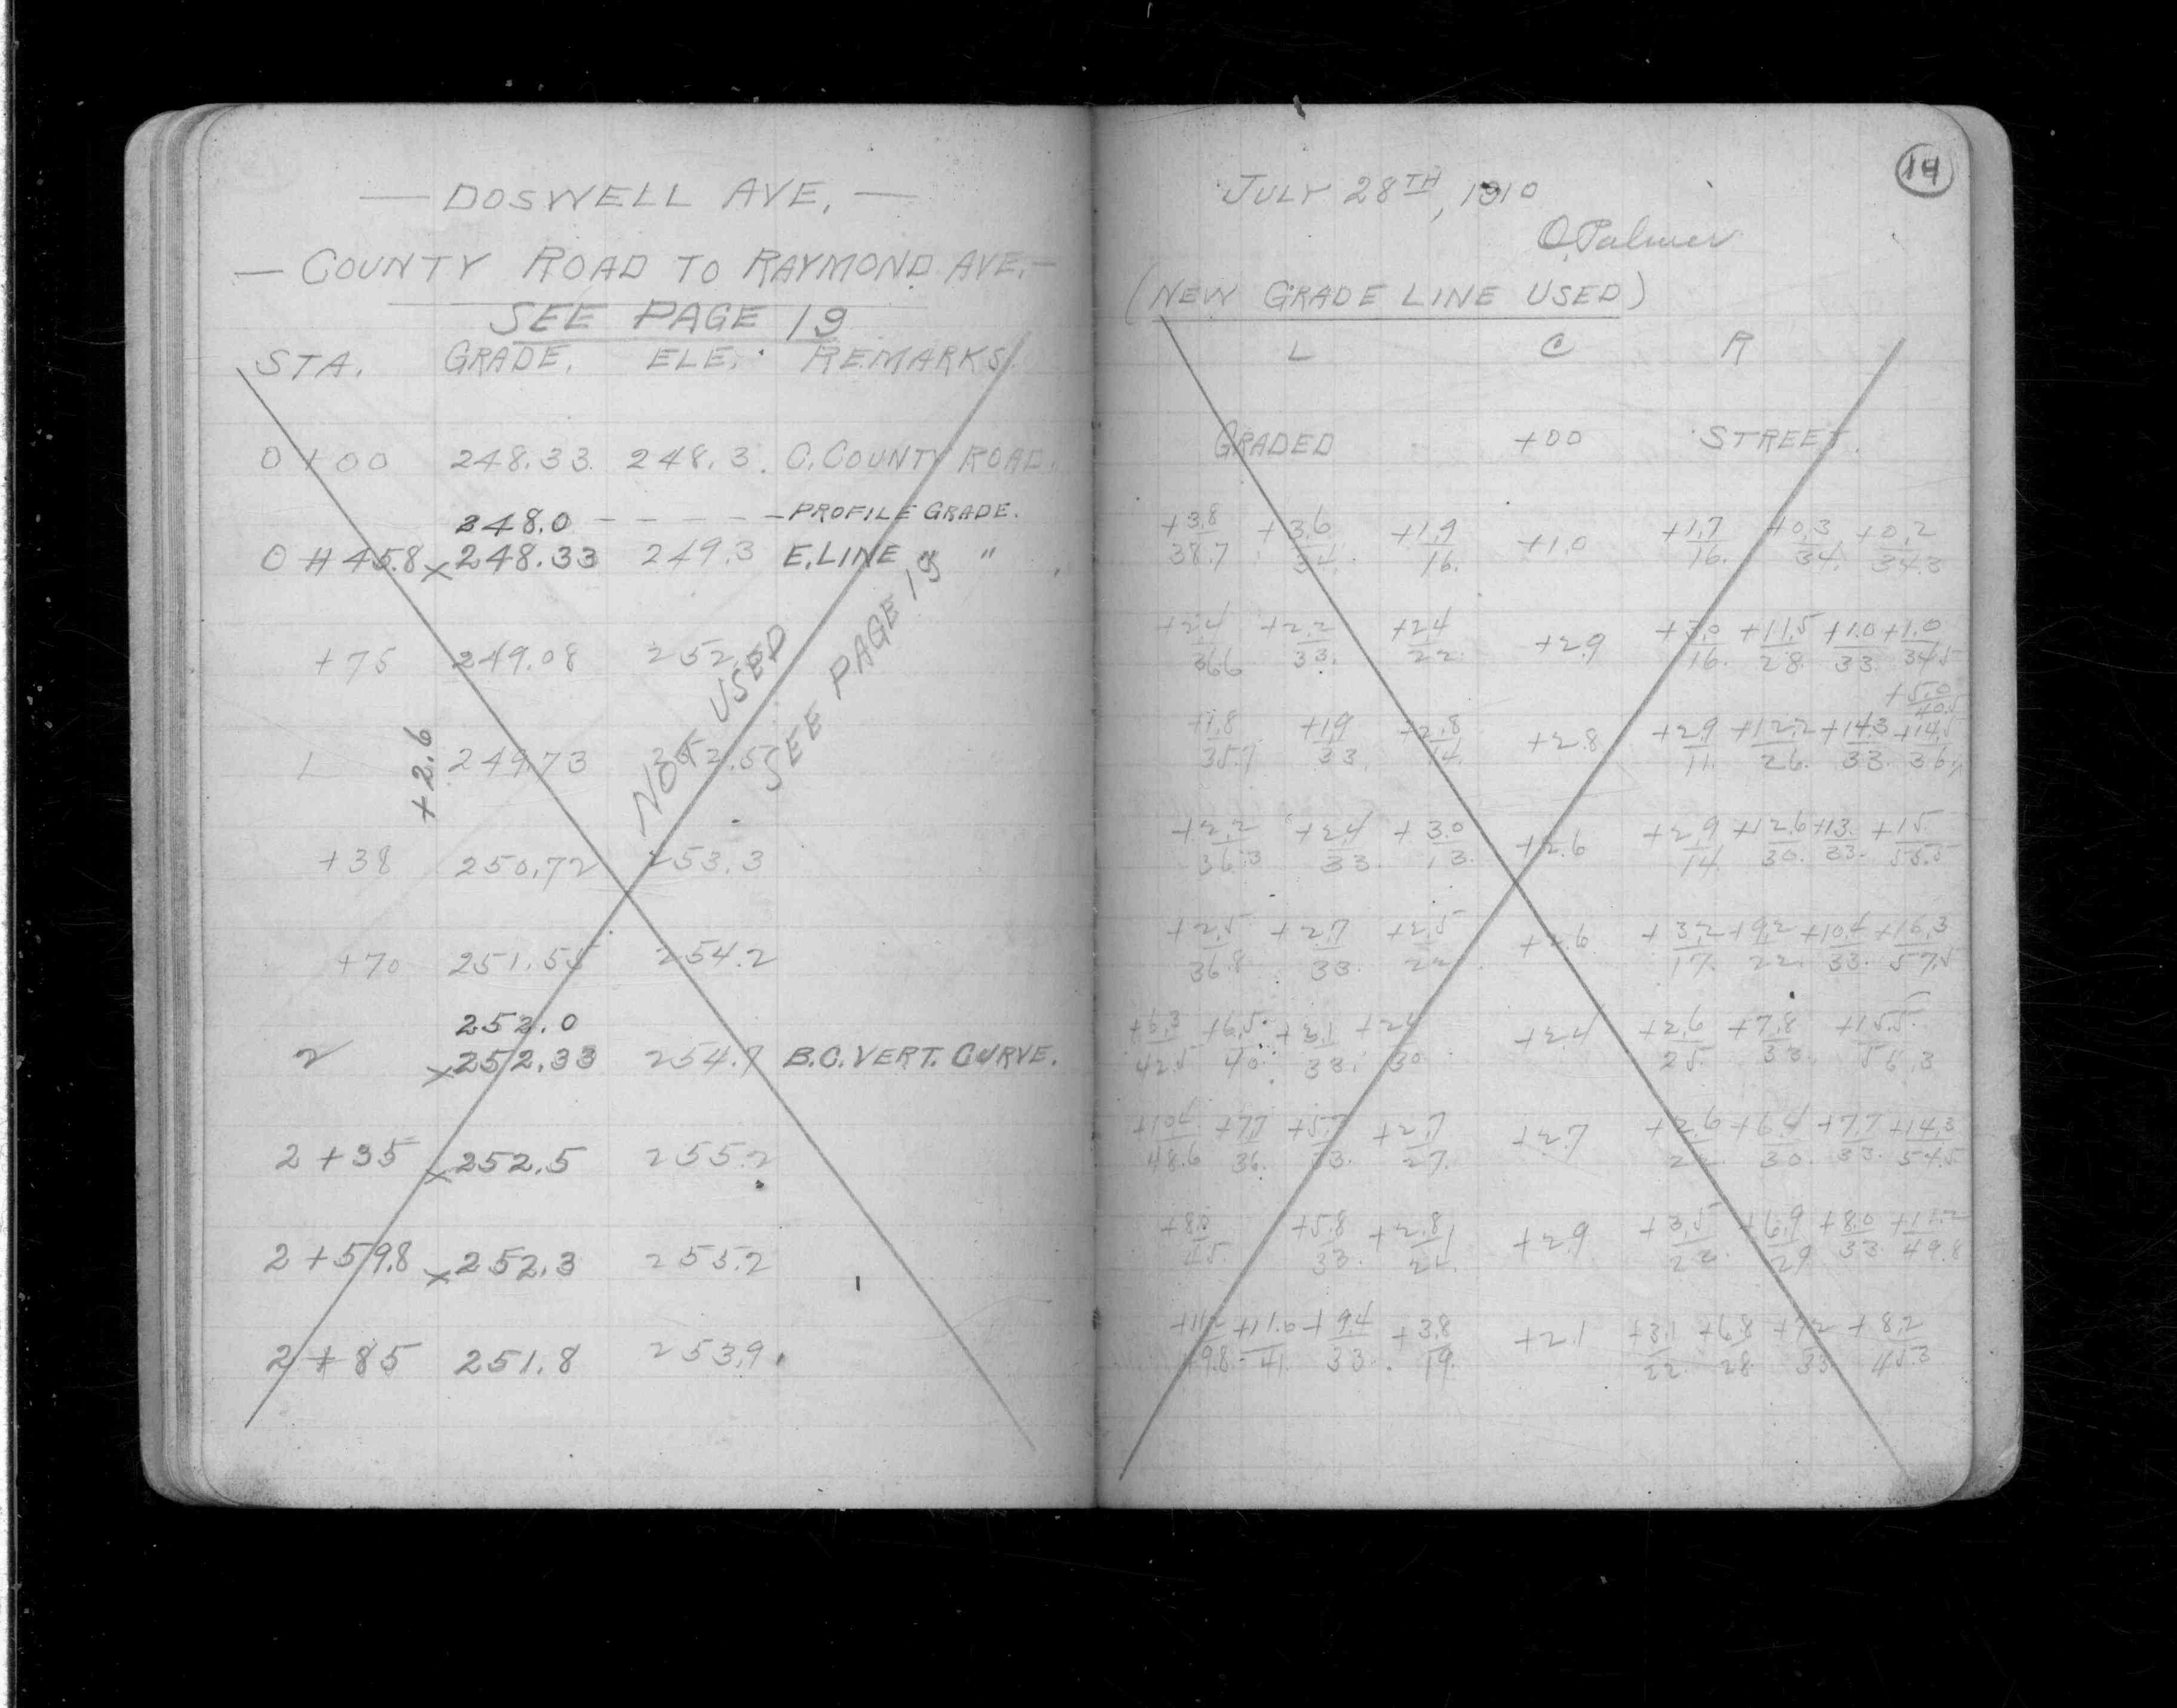 — DOSWELL AVE. —
— COUNTY ROAD TO RAYMOND AVE. —
SEE PAGE 19
STA. GRADE. ELE. REMARKS
0+00 248.33 248.3 C. COUNTY ROAD.
248.0 - - - - - PROFILE GRADE.
0+45.8 x 248.33 249.3 E. LINE " "
+75 249.08 252.
1 249.73 252.5
+38 250.72 253.3
+70 251.55 254.2
252.0
2 x 252.33 254.7 B.C. VERT. CURVE.
2+35 x 252.5 255.2
2+59.8 x 252.3 255.2
2+85 251.8 253.9
+2.6
NOT USED
SEE PAGE 19
14
JULY 28TH, 1910
O. Palmer
(NEW GRADE LINE USED)
L C R
GRADED +00 STREET.
+3.8 +3.6 +1.9 +1.0 +1.7 +0.3 +0.2
38.7 34. 16. 16. 34. 34.3
+2.4 +2.2 +2.4 +2.9 +3.0 +11.5 +1.0 +1.0
36.6 33. 22. 16. 28. 33. 34.5
+5.0
40.5
+1.8 +1.9 +2.8 +2.8 +2.9 +12.2 +14.3 +14.5
35.7 33. 14. 11. 26. 33. 36.
+2.2 +2.4 +3.0 +2.6 +2.9 +12.6 +13. +15.
36.3 33. 13. 14. 30. 33. 55.5
+2.5 +2.7 +2.5 +2.6 +3.2 +9.2 +10.4 +16.3
36.8 33. 22. 17. 22. 33. 57.5
+6.3 +6.5 +3.1 +2.4 +2.4 +2.6 +7.8 +15.5
42.5 40. 33. 30 25. 33. 56.3
+10.4 +7.7 +5.7 +2.7 +2.7 +2.6 +6.4 +7.7 +14.3
48.6 36. 33. 27. 22. 30. 33. 54.5
+8.0 +5.8 +2.8 +2.9 +3.5 +6.9 +8.0 +11.2
45 33. 22. 29 33. 49.8
+11.2 +11.6 +9.4 +3.8 +2.1 +3.1 +6.8 +7.2 +8.2
49.8 41. 33. 19. 22. 28. 33. 45.3